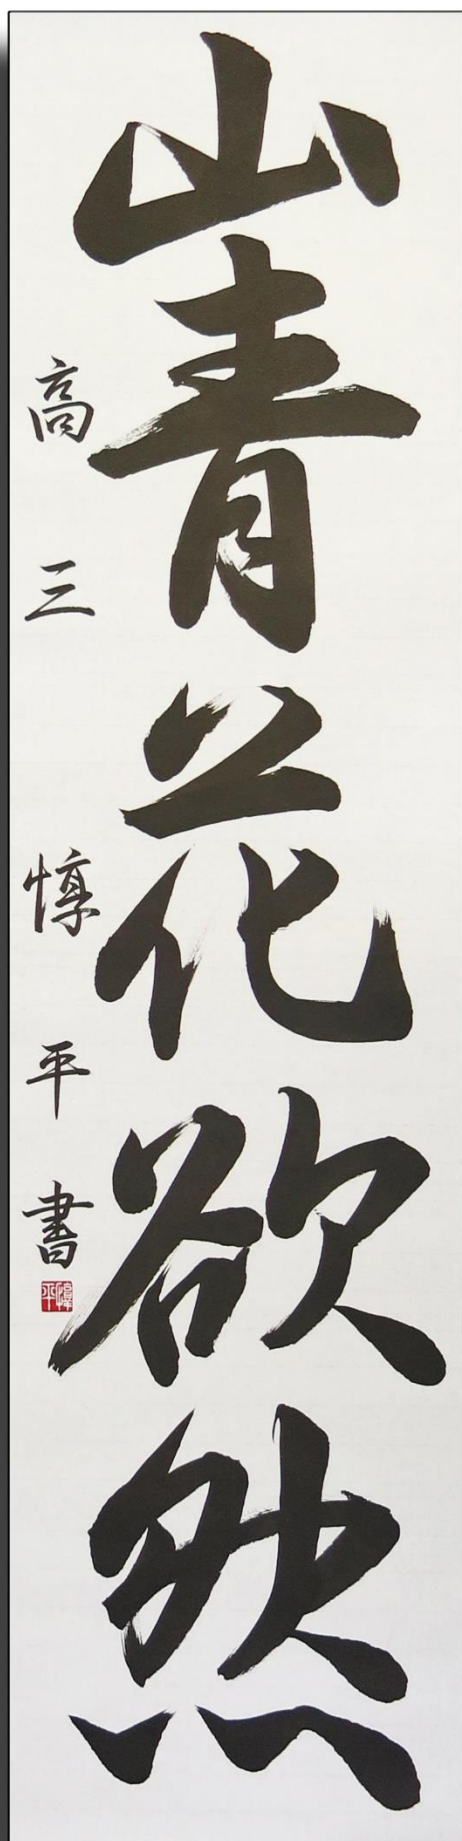 山青花欲然
高三 惇平書
惇平